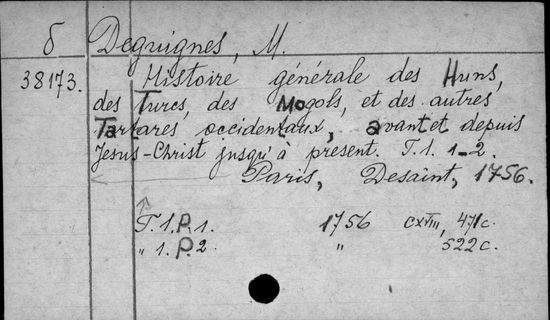 б Deguignes, M.
38173. Histoire générale des Huns,
des Turcs, des Mogols, et des autres
Tartares occidentaux, avant et depuis
Jesus-Christ jusqu'à present. T. 1. 1-2.
Paris, Desaint, 1756.
T. 1. P. 1. 1756 CXVIII, 471 c.
" 1. P. 2 " 522 c.